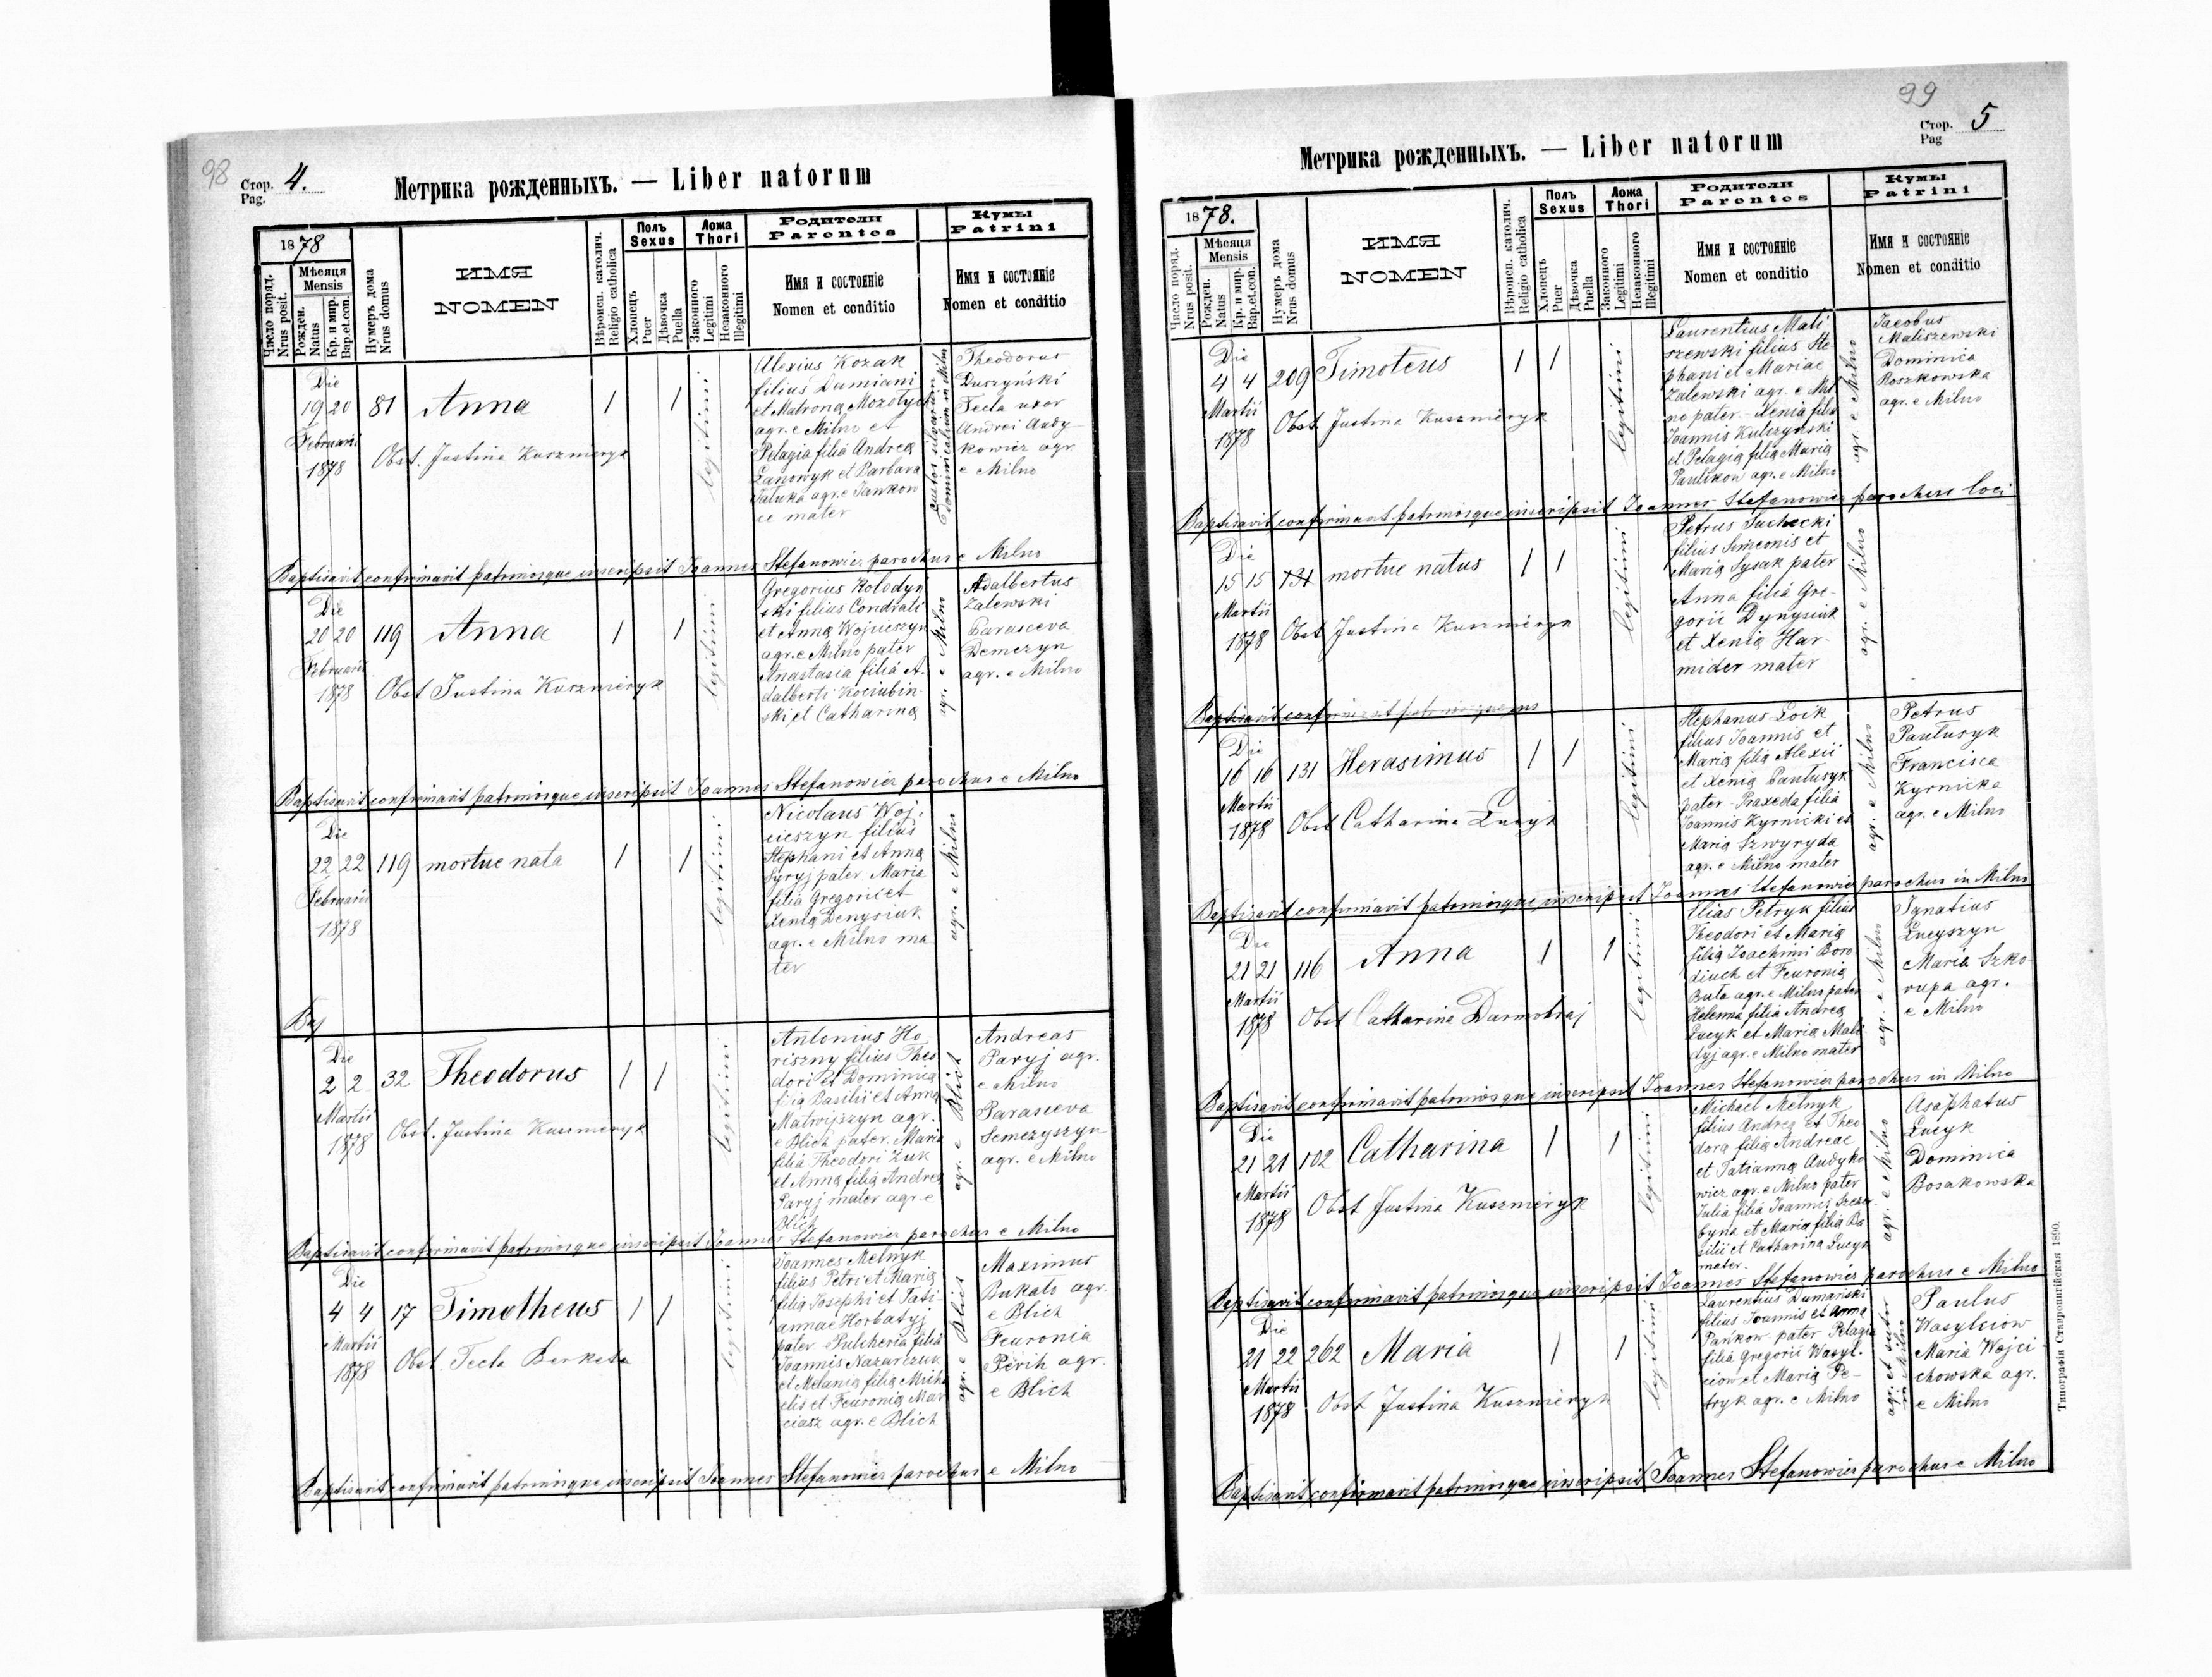 98
Стор. 4.
Pag.
Метрика рожденныхъ. — Liber natorum
1878
Число поряд.
Nrus posit.
Мѣсяця
Mensis
Рожден.
Natus
Кр. и мир.
Bap.et.con.
Нумеръ дома
Nrus domus
ИМЯ
NOMEN
Вѣроисп. католич.
Religio catholica
Полъ
Sexus
Хлопецъ
Puer
Дѣвочка
Puella
Ложа
Thori
Законного
Legitimi
Незаконного
Illegitimi
Родители
Parentes
Имя и состояніе
Nomen et conditio
Кумы
Patrini
Имя и состояніе
Nomen et conditio
Die
19 20 81 Anna 1 1 legitimi
Februarii
1878
Obst. Justina Kuszmiryk
Alexius Kozak
filius Damiani
et Matrona Mozolyck
agr. e Milno et
Pelagia filia Andrea
Lanowyk et Barbara
Jatuka agr. e Jankow
ce mater
Custos silvarum
dominicalium in Milno
Theodorus
Duszyński
Tecla uxor
Andrei Audy-
kowicz agr.
e Milno
Baptisavit confirmavit patrinosque inscripsit Joannes Stefanowicz parochus e Milno
Die
20 20 119 Anna 1 1 legitimi
Februarii
1878
Obst Justina Kuszmiryk
Gregorius Kolodyń
ski filius Condrati
et Anna Wojciszyn
agr. e Milno pater
Anastasia filia A-
dalberti Kociubin-
ski et Catharina
agr. e Milno
Adalbertus
Zalewski
Parasceva
Demczyn
agr. e Milno
Baptisavit confirmavit patrinosque inscripsit Joannes Stefanowicz parochus e Milno
Die
22 22 119 mortue nata 1 1 legitimi
Februarii
1878
Nicolaus Woj-
ciszyn filius
Stephani et Anna
Syryj pater Maria
filia Gregorii et
Xenia Denysiuk
agr. e Milno ma
ter
agr. e Milno
Bap
Die
2 2 32 Theodorus 1 1 legitimi
Martii
1878
Obst. Justina Kuszmiryk
Antonius Ho
riszny filius Theo
dori et Dominica
filia Basilii et Anna
Matwijszyn agr.
e Blich pater. Maria
filia Theodori Zuk
et Anna filia Andrea
Paryj mater agr. e
Blich
agr. e Blich
Andreas
Paryj agr.
e Milno
Parasceva
Semczyszyn
agr. e Milno
Baptisavit confirmavit patrinosque inscripsit Joannes Stefanowicz parochus e Milno
Die
4 4 17 Timotheus 1 1 legitimi
Martii
1878
Obst. Tecla Berkета
Joannes Melnyk
filius Petri et Maria
filia Josephi et Tati
annae Horbatyj
pater - Pulcheria filia
Joannis Nazarczuk
et Melania filia Micha
elis et Feuronia Mar
ciasz agr. e Blich
agr. e Blich
Maximus
Bukato agr.
e Blich
Feuronia
Perih agr.
e Blich
Baptisavit confirmavit patrinosque inscripsit Joannes Stefanowicz parochus e Milno
99
Стор. 5
Pag
Метрика рожденныхъ. — Liber natorum
1878.
Число поряд.
Nrus posit.
Мѣсяця
Mensis
Рожден.
Natus
Кр. и мир.
Bap.et.con.
Нумеръ дома
Nrus domus
ИМЯ
NOMEN
Вѣроисп. католич.
Religio catholica
Полъ
Sexus
Хлопецъ
Puer
Дѣвочка
Puella
Ложа
Thori
Законного
Legitimi
Незаконного
Illegitimi
Родители
Parentes
Имя и состояніе
Nomen et conditio
Кумы
Patrini
Имя и состояніе
Nomen et conditio
Die
4 4 209 Timoteus 1 1 legitimi
Martii
1878
Obst Justina Kuszmiryk
Laurentius Mali
szewski filius Ste
phani et Mariae
Zalewski agr. e Mil
no pater - Xenia filia
Joannis Kulczynski
et Pelagia filia Maria
Paulikow agr. e Milno
agr. e Milno
Jacobus
Maliszewski
Dominica
Roszkowska
agr. e Milno
Baptisavit confirmavit patrinosque inscripsit Joannes Stefanowicz parochus loci
Die
15 15 131 mortue natus 1 1 legitimi
Martii
1878
Obst Justina Kuszmiryk
Petrus Suchecki
filius Simeonis et
Maria Sysak pater
Anna filia Gre-
gorii Dynysiuk
et Xenia Har-
mider mater
agr. e Milno
Baptisavit confirmavit patrinosque ins
Die
16 16 131 Herasimus 1 1 legitimi
Martii
1878
Obst Catharina Lucyk
Stephanus Loik
filius Joannis et
Maria filia Alexii
et Xenia Pantusyk
pater - Praxeda filia
Joannis Kyrnicki et
Maria Szwyryda
agr. e Milno mater
agr. e Milno
Petrus
Pantusyk
Francisca
Kyrnicka
agr. e Milno
Baptisavit confirmavit patrinosque inscripsit Joannes Stefanowicz parochus in Milno
Die
21 21 116 Anna 1 1 legitimi
Martii
1878
Obst Catharina Darmohraj
Elias Petryk filius
Theodori et Maria
filia Joachimi Boro
diuch et Feuronia
Buta agr. e Milno pater
Helenna filia Andrea
Lucyk et Maria Mala
dyj agr. e Milno mater
agr. e Milno
Ignatius
Lucyszyn
Maria Szko-
rupa agr.
e Milno
Baptisavit confirmavit patrinosque inscripsit Joannes Stefanowicz parochus in Milno
Die
21 21 102 Catharina 1 1 legitimi
Martii
1878
Obst Justina Kuszmiryk
Michael Melnyk
filius Andrea et Theo
dora filia Andreae
et Tatianna Audyko
wicz agr. e Milno pater
Julia filia Joannis Szczer
byna et Maria filia Ba
silii et Catharina Lucyk
mater.
agr. e Milno
Asaphatus
Lucyk
Dominica
Bosakowska
Baptisavit confirmavit patrinosque inscripsit Joannes Stefanowicz parochus e Milno
Die
21 22 262 Maria 1 1 legitimi
Martii
1878
Obst Justina Kuszmiryk
Laurentius Dumański
filius Joannis et Anna
Pańkow pater Pelagia
filia Gregorii Wasyl-
ciow et Maria Pe-
tryk agr. e Milno
agr. et sutor
in Milno
Paulus
Wasylciow
Maria Wojci-
chowska agr.
e Milno
Baptisavit confirmavit patrinosque inscripsit Joannes Stefanowicz parochus e Milno
Типографія Ставропигійская 1890.